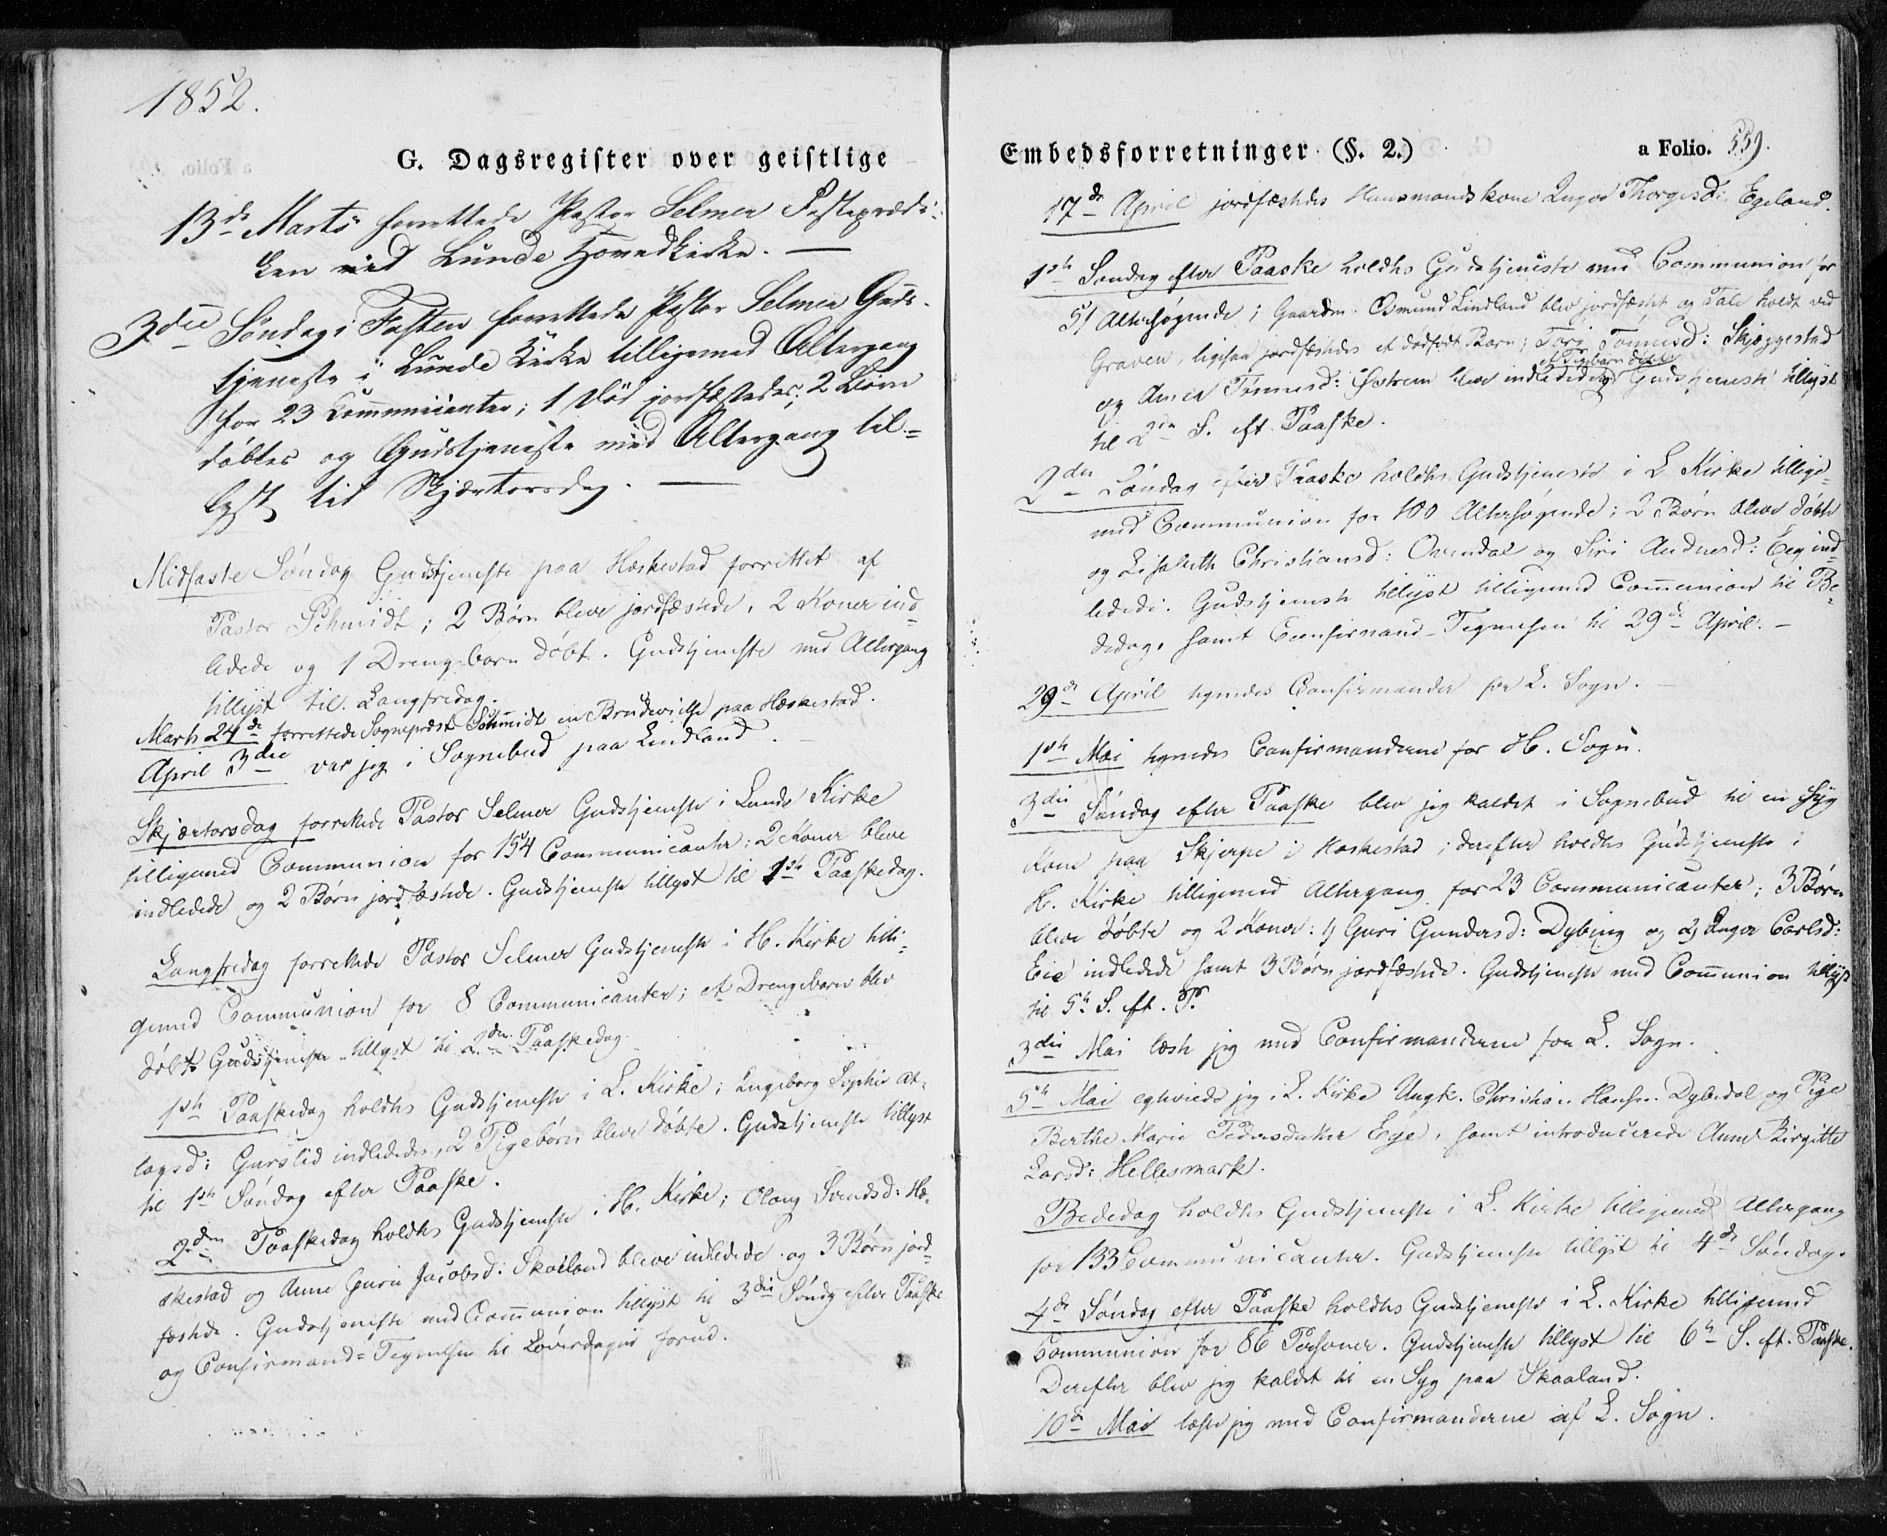 1852.
G. Dagsregister over geistlige
13de Marts forrettede Pastor Selmer Fasteprædi-
ken ved Lunde Hovedkirke. —
3die Søndag i Fasten forrettede Pastor Selmer Guds-
tjeneste i Lunde Kirke tilligemed Altergang
for 23 Communicanter; 1 Død jordfæstedes; 2 Børn
døbtes og Gudstjeneste med Altergang til-
lyst til Skjærtorsdag. —
Midfaste Søndag Gudstjeneste paa Heskestad forrettet af
Pastor Schmidt; 2 Børn bleve jordfæstede, 2 Koner ind-
ledede og 1 Drengebarn døbt. Gudstjeneste med Altergang
tillyst til Langfredag.
Marts 24de forrettede Sognepræst Schmidt en Brudevielse paa Heskestad.
April 3die var jeg i Sognebud paa Lindland.
Skjærtorsdag forrettede Pastor Selmer Gudstjeneste i Lunde Kirke
tilligemed Communion for 154 Communicanter; 2 Koner bleve
indledede og 2 Børn jordfæstede. Gudstjeneste tillyst til 1ste Paaskedag.
Langfredag forrettede Pastor Selmer Gudstjeneste i H. Kirke tilli-
gemed Communion for 8 Communicanter; et Drengebarn blev
døbt. Gudstjeneste tillyst til 2den Paaskedag.
1ste Paaskedag holdtes Gudstjeneste i L. Kirke; Ingeborg Sophie At-
lagsd: Gurslid indlededes, 2 Pigebørn bleve døbte. Gudstjeneste tillyst
til 1ste Søndag efter Paaske.
2den Paaskedag holdtes Gudstjeneste i H. Kirke; Olaug Svendsd: He-
skestad og Anne Gurie Jacobsd: Skaaland bleve indledede og 3 Børn jord-
fæstede. Gudstjeneste med Communion tillyst til 3die Søndg efter Paaske
og Confirmand-Tegnelsen til Løverdagen forud.
Embedsforretninger (§. 2.)
a Folio. 559.
17de April jordfæstedes Huusmandskone Inger Thorgersd: Egeland.
1ste Søndag efter Paaske holdtes Gudstjeneste med Communion for
51 Altersøgende; Gaardm. Osmund Lindland blev jordfæstet og Tale holdt ved
Graven, ligesaa jordfæstedes et dødfødt Barn; Torg Tønnesd: Skjæggestad
et Pigebarn døbtes
og Anna Tønnesd: Østrem bleve indledede og Gudstjeneste tillyst
til 2den S. eft. Paaske.
2den Søndag efter Paaske holdtes Gudstjeneste i L. Kirke tillige-
med Communion for 100 Altersøgende; 2 Børn bleve døbte
og Lisabeth Christiansd: Ovendal og Siri Andersd: Eeg ind-
ledede. Gudstjeneste tillyst tilligemed Communion til Be-
dedag, samt Confirmand-Tegnelsen til 29de April. —
29de April tegnedes Confirmander for L. Sogn.
1ste Mai tegnedes Confirmanderne for H. Sogn.
3die Søndag efter Paaske blev jeg kaldet i Sognebud til en syg
Kone paa Skjerpe i Heskestad; derefter holdtes Gudstjeneste i
H. Kirke tilligemed Altergang for 23 Communicanter; 3 Børn
bleve døbte og 2 Koner: 1) Guri Gundersd: Dybing og 2) Inger Carlsd:
Eie indledede samt 3 Børn jordfæstede. Gudstjeneste med Communion tillyst
til 5te S. eft. P.
3die Mai læste jeg med Confirmanderne for L. Sogn.
5te Mai egteviede jeg i L. Kirke Ungk. Christian Hansen Dybedal og Pige
Berthe Marie Pedersdatter Eye, samt introducerede Anne Birgitte
Larsd: Hellesmark.
Bededag holdtes Gudstjeneste i L. Kirke tilligemed Altergang
for 133 Communicanter. Gudstjeneste tillyst til 4de Søndag.
4de Søndag efter Paaske holdtes Gudstjeneste i L. Kirke tilligemed
Communion for 86 Personer. Gudstjeneste tillyst til 6te S. eft. Paaske.
Derefter blev jeg kaldet til en Syg paa Skaaland.
10de Mai læste jeg med Confirmanderne af L. Sogn.